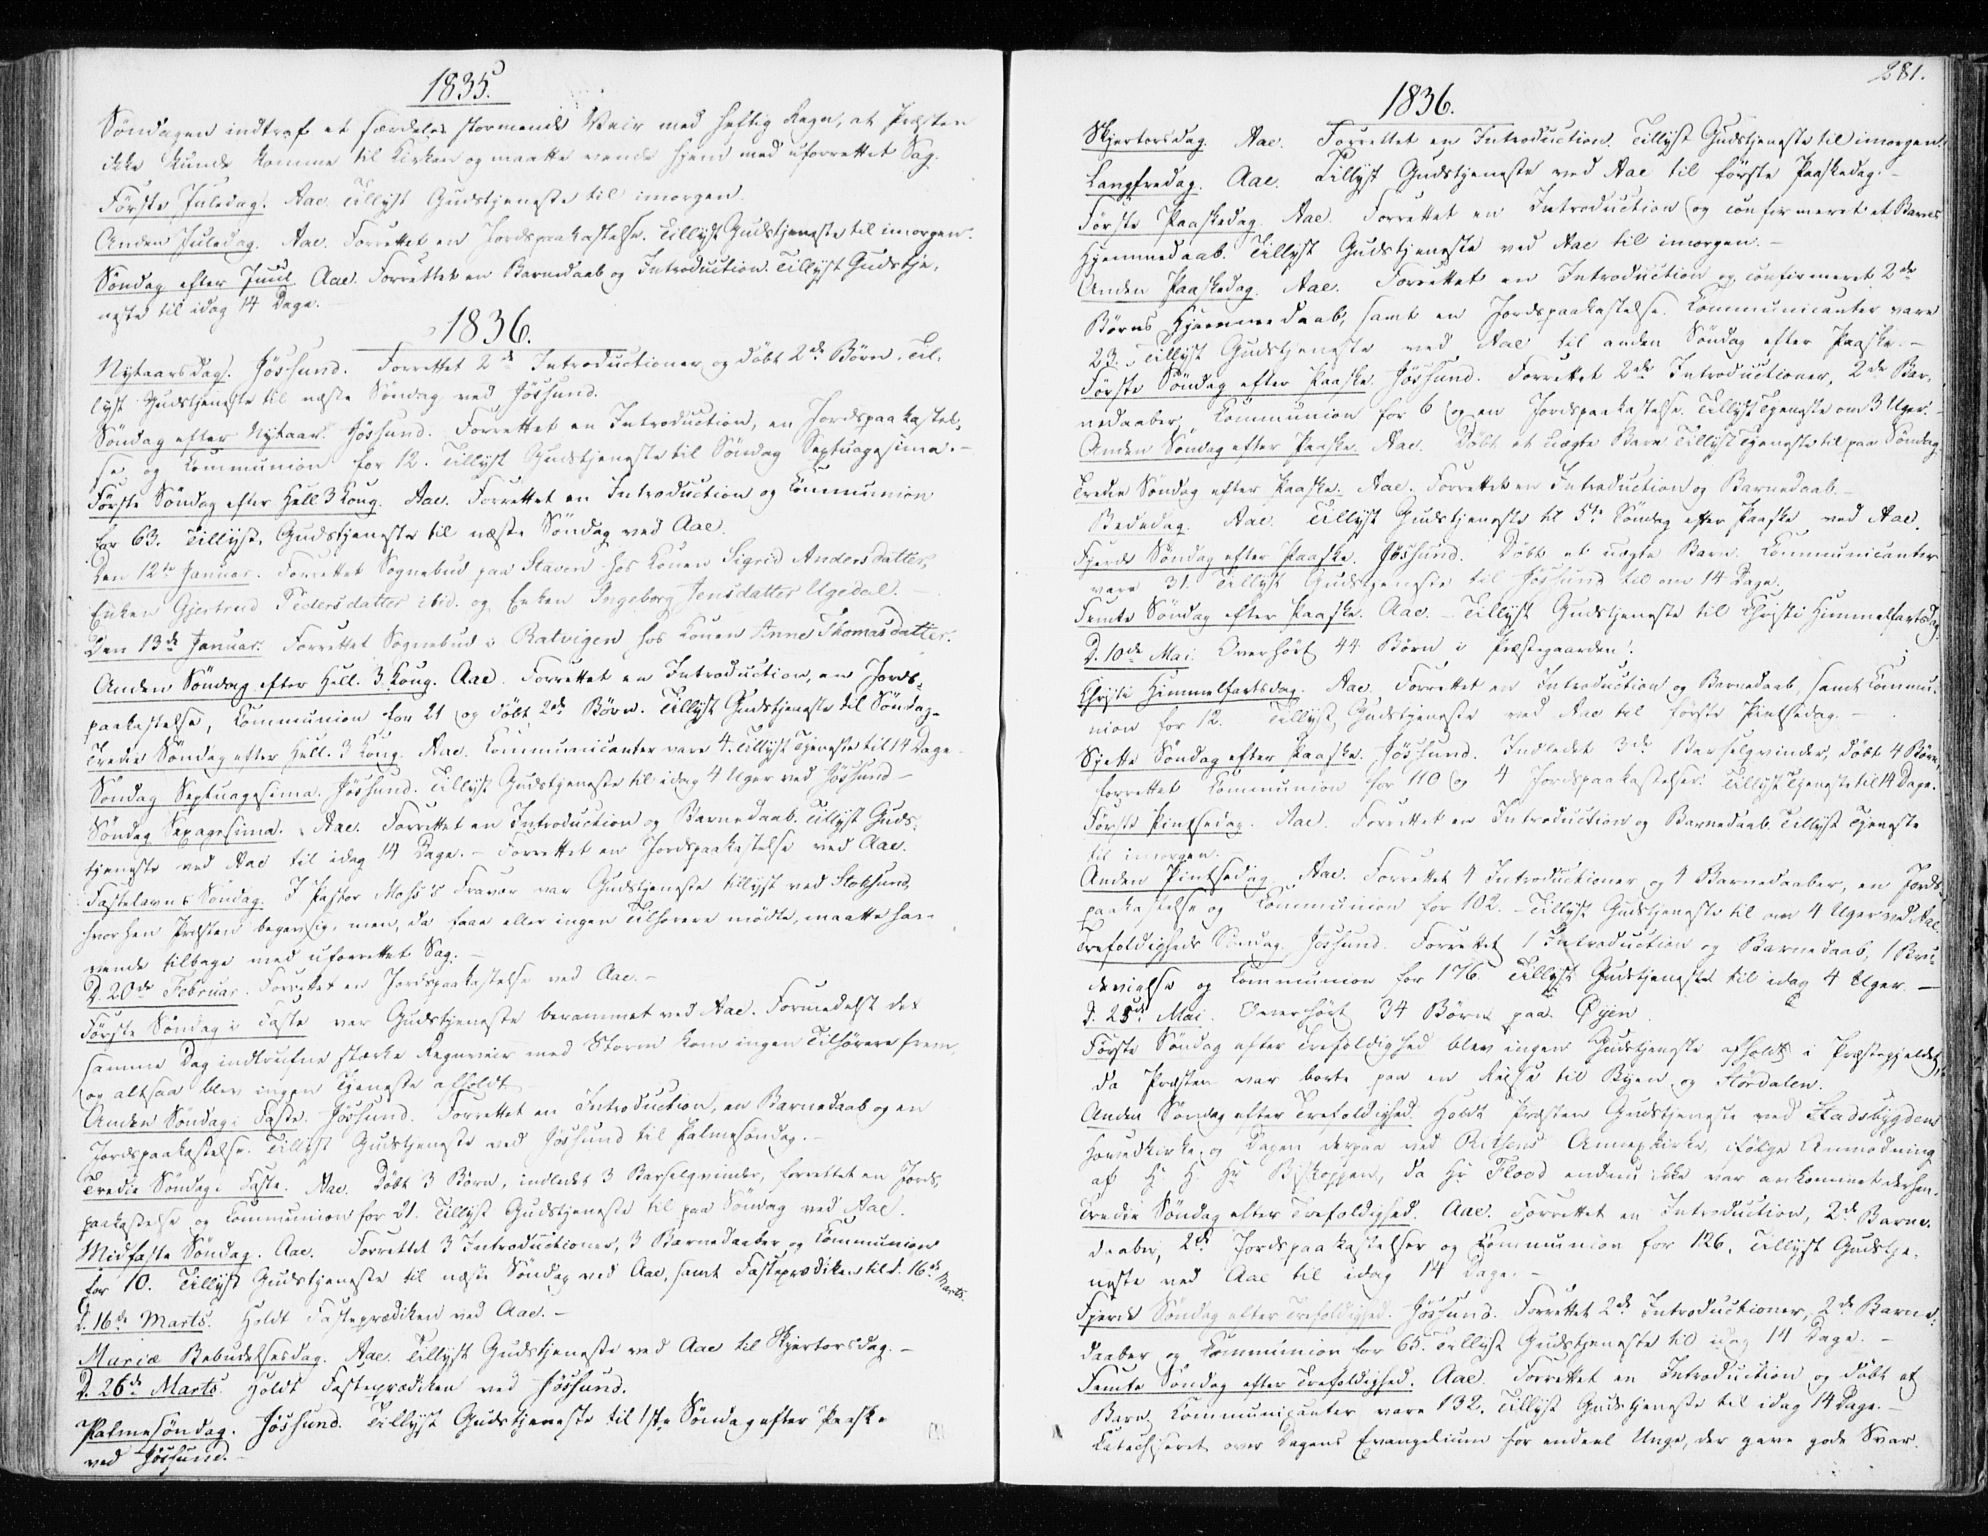 1835.
Søndagen indtraf et særdeles stormende Veir med heftig Regn, at Præsten
ikke kunde komme til Kirken og maatte vende hjem med uforrettet Sag.
Første Juledag. Aae. Tillyst Gudstjeneste til imorgen.
Anden Juledag. Aae. Forrettet en Jordspaakastelse. Tillyst Gudstjeneste til imorgen.
Søndag efter Juul. Aae. Forrettet en Barnedaab og Introduction. Tillyst Gudstje-
neste til idag 14 Dage.
1836.
Nytaarsdag. Jøssund. Forrettet 2de Introductioner og døbt 2de Børn. Til-
lyst Gudstjeneste til næste Søndag ved Jøssund.
Søndag efter Nytaar. Jøssund. Forrettet en Introduction, en Jordspaakastel-
se og Communion for 12. Tillyst Gudstjeneste til Søndag Septuagesima. -
Første Søndag efter Hell 3 Kong. Aae. Forrettet en Introduction og Communion
for 63. Tillyst Gudstjeneste til næste Søndag ved Aae.
Den 12te Januar. Forrettet Sognebud paa Staven hos Konen Sigrid Andersdatter,
Enken Gjertrud Pedersdatter ibid. og Enken Ingeborg Jensdatter Ugedal. -
Den 13de Januar. Forrettet Sognebud i Ratvigen hos Konen Anne Thomasdatter.
Anden Søndag efter Hell. 3 Kong. Aae. Forrettet en Introduction, en Jords-
paakastelse, Communion for 21 og døbt 2de Børn. Tillyst Gudstjeneste til Søndag.
Tredie Søndag efter Hell. 3 Kong. Aae. Communicanter vare 4. Tillyst Tjeneste til 14 Dage.
Søndag Septuagesima. Jøssund. Tillyst Gudstjeneste til idag 4 Uger ved Jøssund -
Søndag Sexagesima. Aae. Forrettet en Introduction og Barnedaab. Tillyst Guds-
tjeneste ved Aae til idag 14 Dage. - Forrettet en Jordspaakastelse ved Aae.
Fastelavns Søndag. I Pastor Moss's Fravær var Gudstjeneste tillyst ved Stoksund,
hvorhen Præsten begav sig, men, da faae eller ingen Tilhørere mødte, maatte han
vende tilbage med uforrettet Sag. -
D. 20de Februar. Forrettet en Jordspaakastelse ved Aae. -
Første Søndag i Faste var Gudstjeneste berammet ved Aae. Formedelst det
samme Dag indtrufne stærke Regnveir med Storm kom ingen Tilhørere frem
og altsaa blev ingen Tjeneste afholdt.
Anden Søndag i Faste. Jøssund. Forrettet en Introduction, en Barnedaab og en
Jordspaakastelse. Tillyst Gudstjeneste ved Jøssund til Palmesøndag. -
Tredie Søndag i Faste. Aae. Døbt 3 Børn, indledet 3 Barselqvinder, forrettet en Jords-
paakastelse og Communion for 21. Tillyst Gudstjeneste til paa Søndag ved Aae.
Midfaste Søndag. Aae. Forrettet 3 Introductioner, 3 Barnedaaber og Communion
for 10. Tillyst Gudstjeneste til næste Søndag ved Aae, samt Fasteprædiken til d. 16de Marts.
D. 16de Marts. Holdt Fasteprædiken ved Aae. -
Mariæ Bebudelsesdag. Aae. Tillyst Gudstjeneste ved Aae til Skjertorsdag. -
D. 26de Marts. Holdt Fasteprædiken ved Jøssund.
Palmesøndag. Jøssund. Tillyst Gudstjeneste til 1ste Søndag efter Paaske
ved Jøssund. -
281.
1836.
Skjertorsdag. Aae. Forrettet en Introduction. Tillyst Gudstjeneste til imorgen.
Langfredag. Aae. Tillyst Gudstjeneste ved Aae til første Paaskedag. -
Første Paaskedag. Aae. Forrettet en Introduction og confirmeret et Barns
Hjemmedaab. Tillyst Gudstjeneste ved Aae til imorgen. -
Anden Paaskedag. Aae. Forrettet en Introduction og confirmeret 2de
Børns Hjemmedaab, samt en Jordspaakastelse. Communicanter vare
23. Tillyst Gudstjeneste ved Aae til anden Søndag efter Paaske. -
Første Søndag efter Paaske. Jøssund. Forrettet 2de Introductioner, 2de Bar-
nedaaber, Communion for 6 og en Jordspaakastelse. Tillyst Tjeneste om 3 Uger. -
Anden Søndag efter Paaske. Aae. Døbt et uægte Barn. Tillyst Tjeneste til paa Søndag.
Tredie Søndag efter Paaske. Aae. Forrettet en Introduction og Barnedaab. -
Bededag. Aae. Tillyst Gudstjeneste til 5te Søndag efter Paaske ved Aae.
Fjerde Søndag efter Paaske. Jøssund. Døbt et uægte Barn. Communicanter
vare 31. Tillyst Gudstjeneste til Jøssund til om 14 Dage.
Femte Søndag efter Paaske. Aae. - Tillyst Gudstjeneste til Christi Himmelfartsdag.
D. 10de Mai. Overhørt 44 Børn i Præstegaarden.
Christi Himmelfartsdag. Aae. Forrettet en Introduction og Barnedaab, samt Commu-
nion for 12. Tillyst Gudstjeneste ved Aae til første Pintsedag. -
Sjette Søndag efter Paaske. Jøssund. Indledet 3de Barselqvinder, døbt 4 Børn,
forrettet Communion for 110 og 4 Jordspaakastelser. Tillyst Tjeneste til 14 Dage.
Første Pintsedag. Aae. Forrettet en Introduction og Barnedaab. Tillyst Tjeneste
til imorgen. -
Anden Pintsedag. Aae. Forrettet 4 Introductioner og 4 Barnedaaber, en Jords-
paakastelse og Communion for 102. - Tillyst Gudstjeneste til om 4 Uger ved Aae.
Trefoldigheds Søndag. Jøssund. Forrettet 1 Introduction og Barnedaab, 1 Bru-
devielse og Communion for 176. Tillyst Gudstjeneste til idag 4 Uger. -
D. 25de Mai. Overhørt 34 Børn paa Øyen.
Første Søndag efter Trefoldighed blev ingen Gudstjeneste afholdt i Præstegjeldet,
da Præsten var borte paa en Reise til Byen og Størdalen.
Anden Søndag efter Trefoldighed. Holdt Præsten Gudstjeneste ved Stadsbygdens
Hovedkirke og Dagen derpaa ved Rissens Annexkirke, ifølge Anmodning
af H. H. Hr Biskoppen, da Hr Flood endnu ikke var ankommet derhen.
Tredie Søndag efter Trefoldighed. Aae. Forrettet en Introduction, 2de Barne-
daaber, 2de Jordspaakastelser og Communion for 126. Tillyst Gudstje-
neste ved Aae til idag 14 Dage. -
Fjerde Søndag efter Trefoldighed. Jøssund. Forrettet 2de Introductioner, 2de Barne-
daaber og Communion for 65. Tillyst Gudstjeneste til idag 14 Dage. -
Femte Søndag efter Trefoldighed. Aae. Forrettet en Introduction og døbt et
Barn. Communicanter vare 132. Tillyst Gudstjeneste til idag 14 Dage. -
Catechiseret over Dagens Evangelium for endeel Unge, der gave gode Svar.